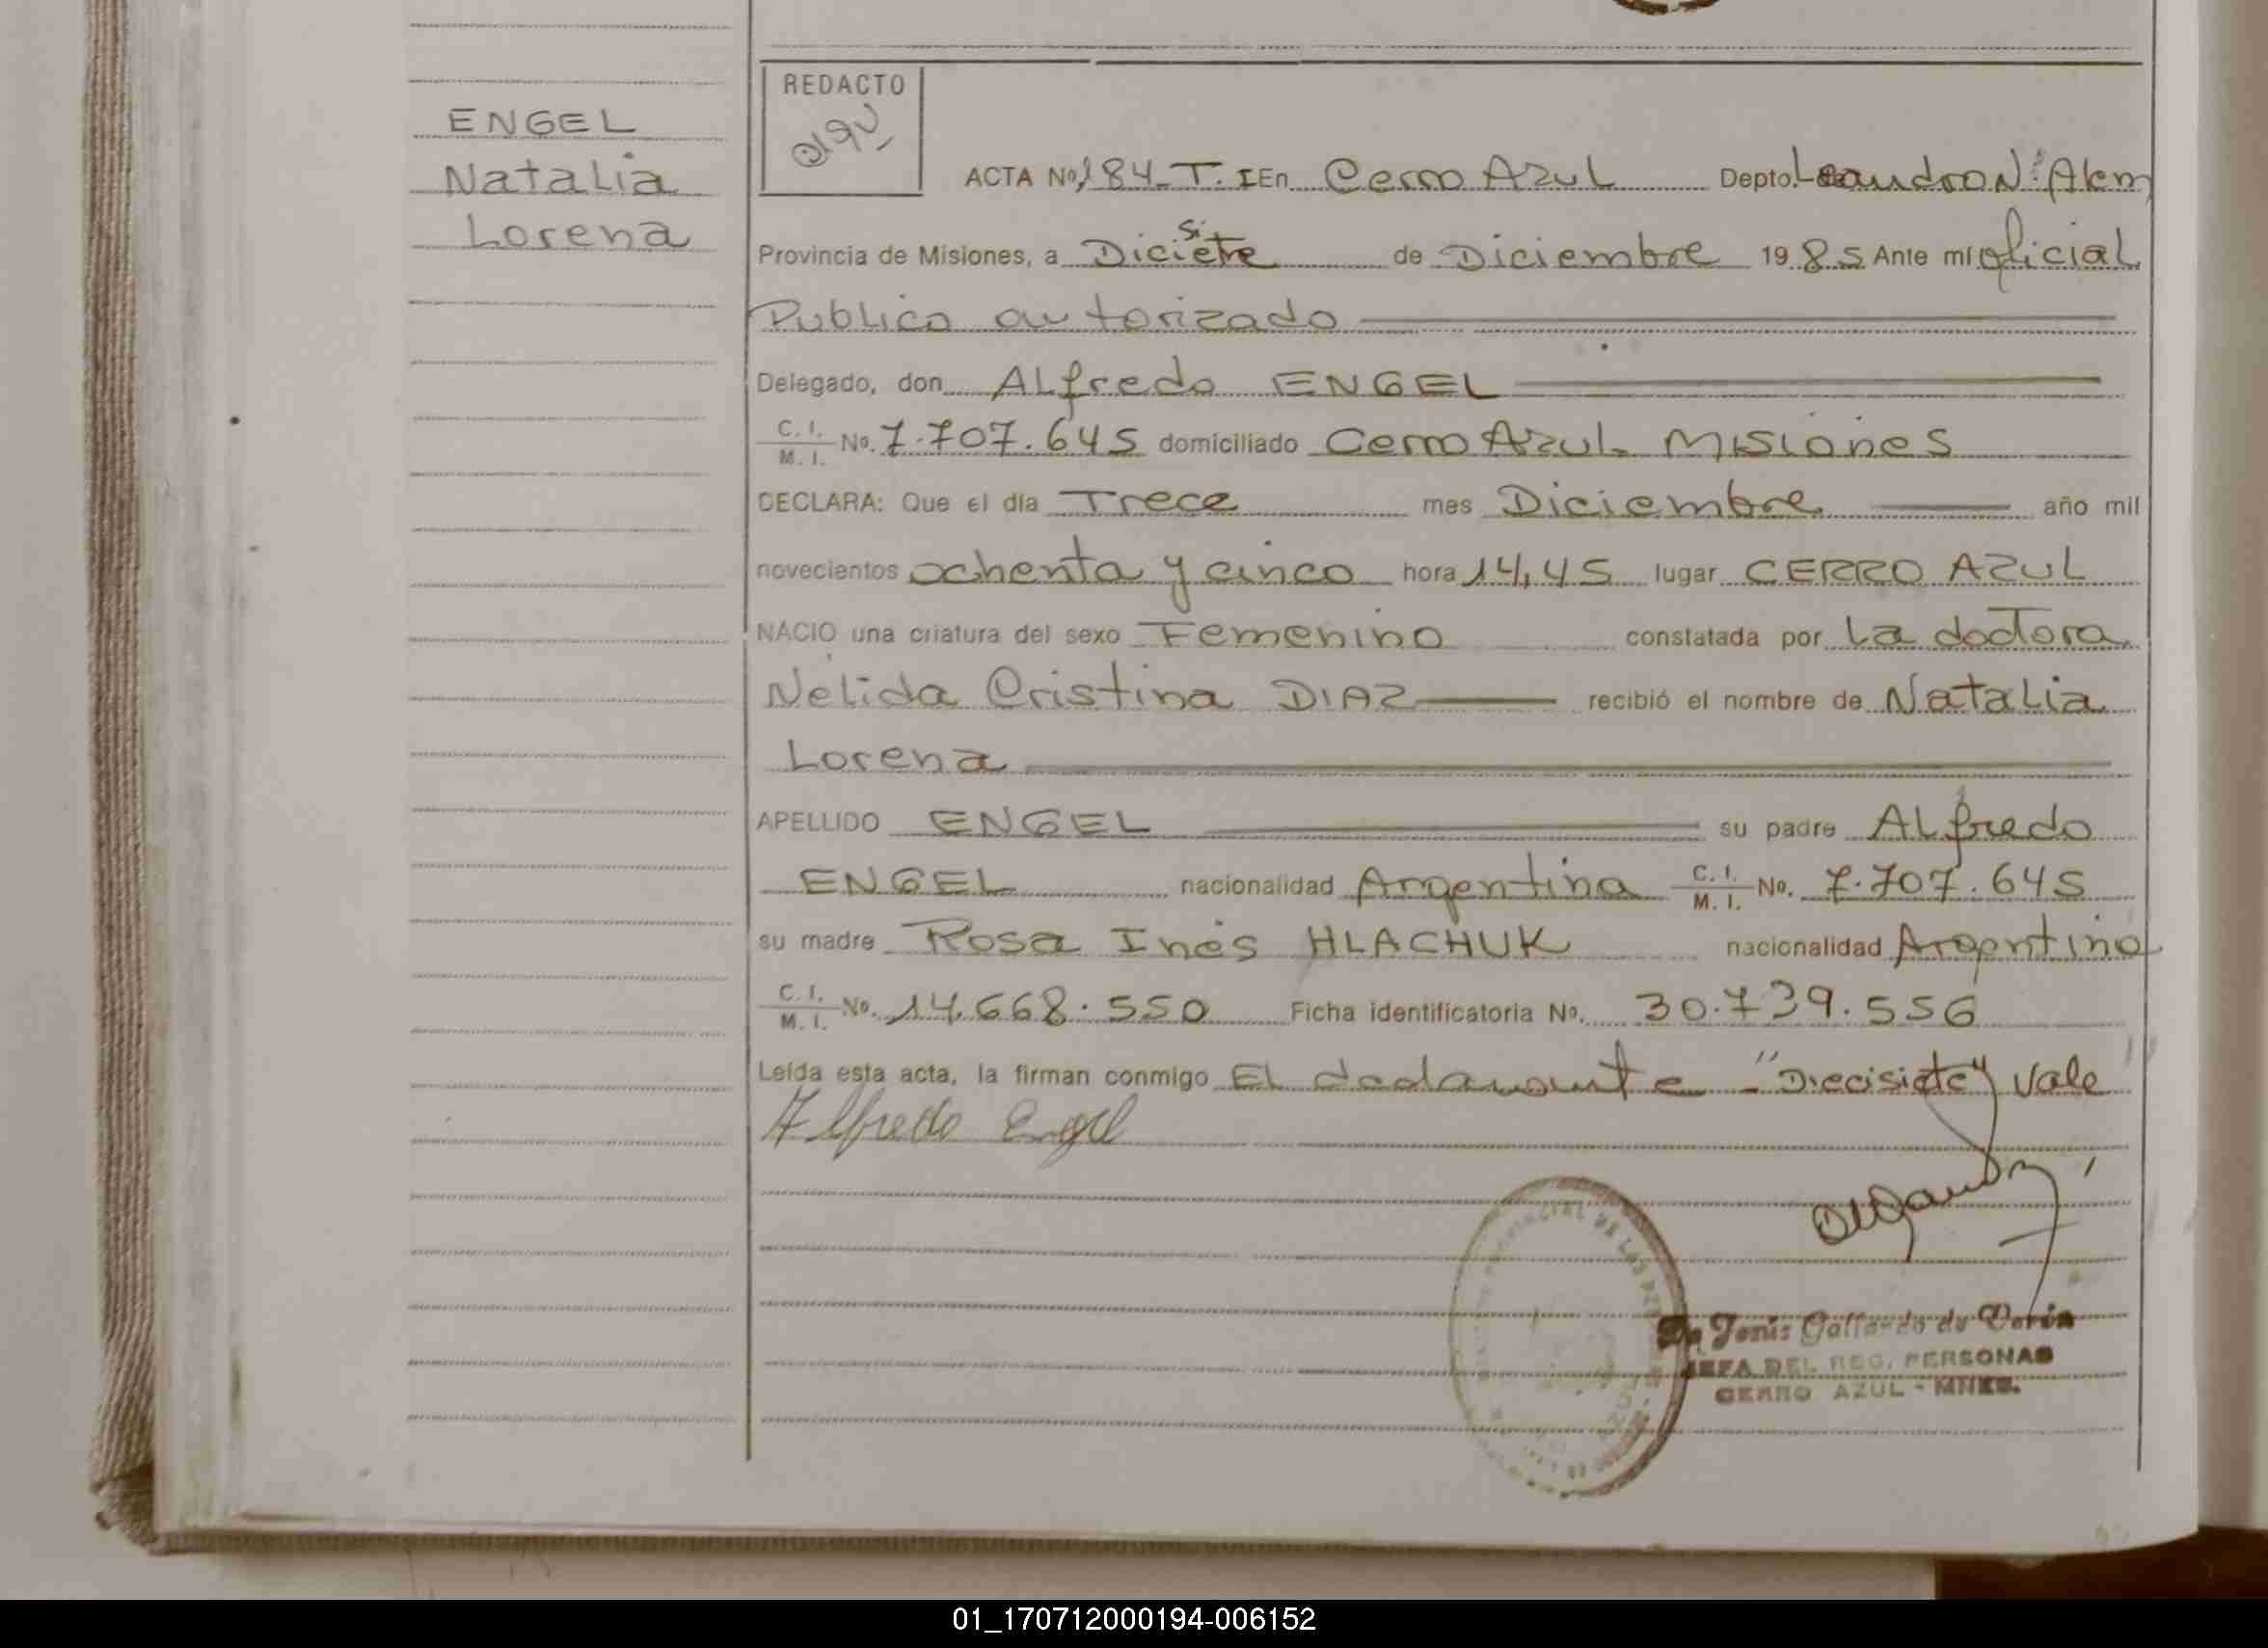 ENGEL
Natalia
Lorena
REDACTO
ACTA No. 184. T. I En Cerro Azul Depto. Leandro N. Alem
Provincia de Misiones, a Diecisiete de Diciembre 1985 Ante mí oficial
Publico autorizado
Delegado, don Alfredo ENGEL
C. I. M. I. No. 7.707.645 domiciliado Cerro Azul Misiones
DECLARA: Que el día Trece mes Diciembre año mil
novecientos ochenta y cinco hora 14,45 lugar CERRO AZUL
NACIO una criatura del sexo Femenino constatada por La doctora
Nélida Cristina DIAZ recibió el nombre de Natalia
Lorena
APELLIDO ENGEL su padre Alfredo
ENGEL nacionalidad Argentina C. I. M. I. No. 7.707.645
su madre Rosa Inés HLACHUK nacionalidad Argentina
C. I. M. I. No. 14.668.550 Ficha identificatoria No. 30.739.556
Leída esta acta, la firman conmigo El declarante - "Diecisiete" Vale
Alfredo Engel
JEFA DEL REG. PERSONAS
CERRO AZUL - MNES.
01_170712000194-006152